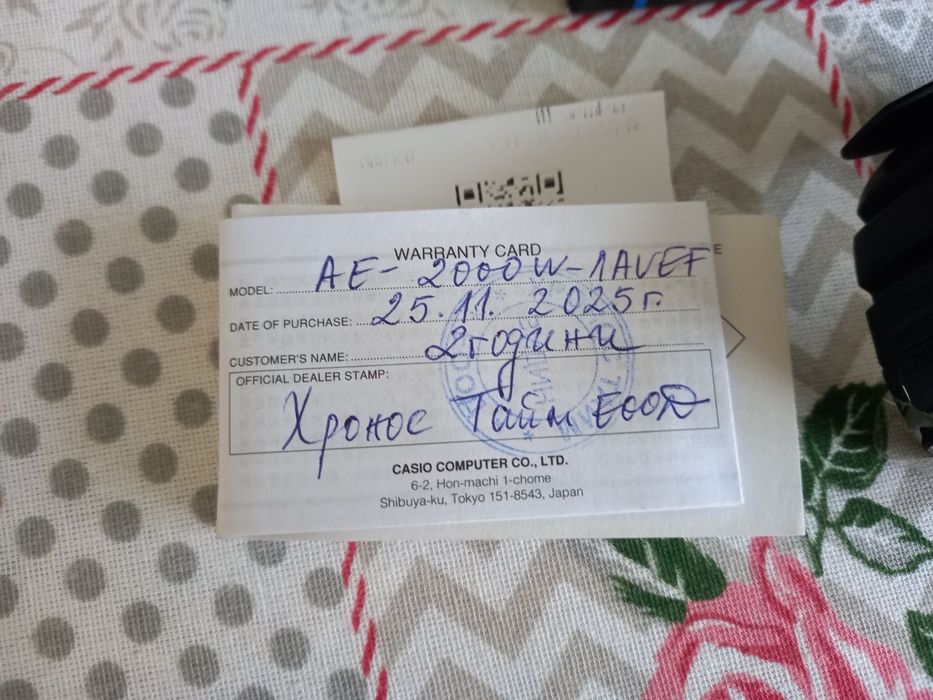 WARRANTY CARD
MODEL: AE-2000W-1AVEF
DATE OF PURCHASE: 25.11.2025г.
CUSTOMER'S NAME: 2 години
OFFICIAL DEALER STAMP:
Хронос Тайм ЕООД
CASIO COMPUTER CO., LTD.
6-2, Hon-machi 1-chome
Shibuya-ku, Tokyo 151-8543, Japan